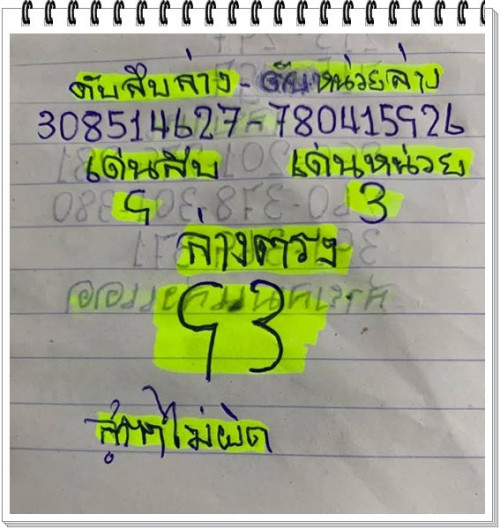 ดับสิบล่าง - ดับหน่วยล่าง
308514627-780415926
เด่นสิบ เด่นหน่วย
9 3
ล่างตรง
93
ไม่ผิด